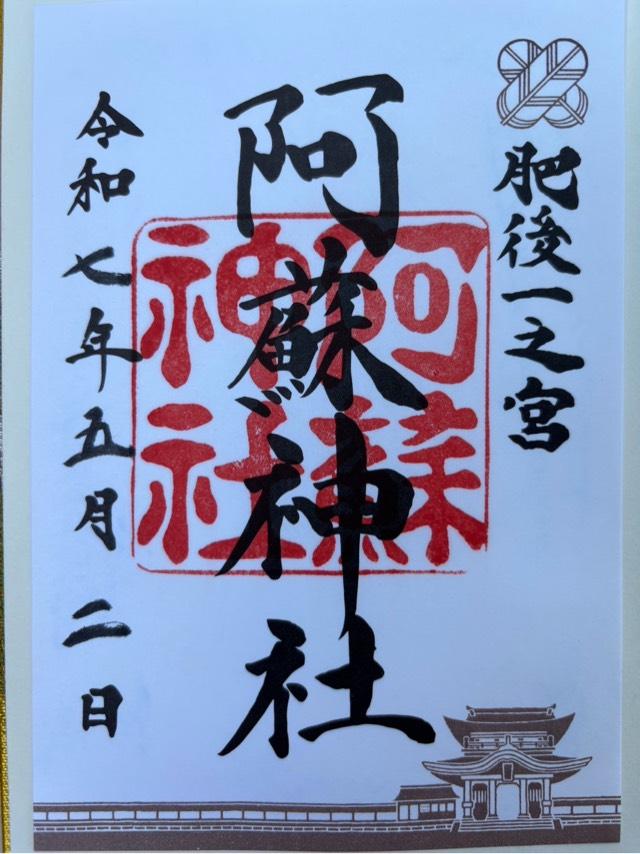 肥後一之宮
阿蘇神社
阿蘇神社
令和七年五月二日